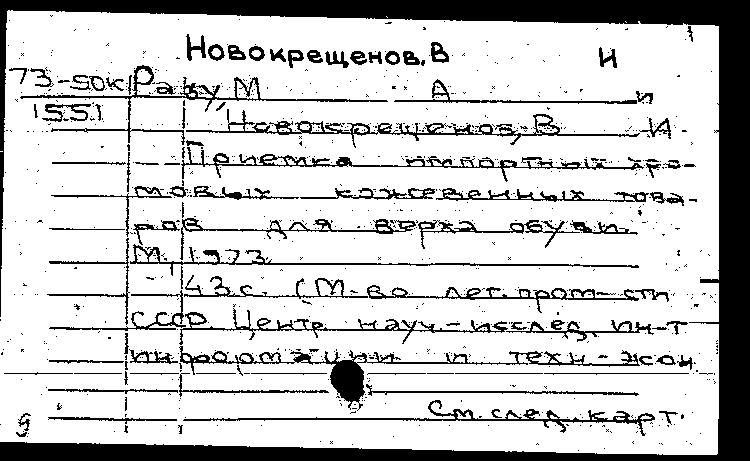 Новокрещенов, В И
73-50к Разу, М А и
1551
Новокрещенов, В И
Приемка импортных хро-
мовых кожевенных това-
ров для верха обуви.
М., 1973
43с. (М-во лег. пром-сти
СССР. Центр. науч-исслед. ин-т
информации и техн-экон
См. след. карт.
9